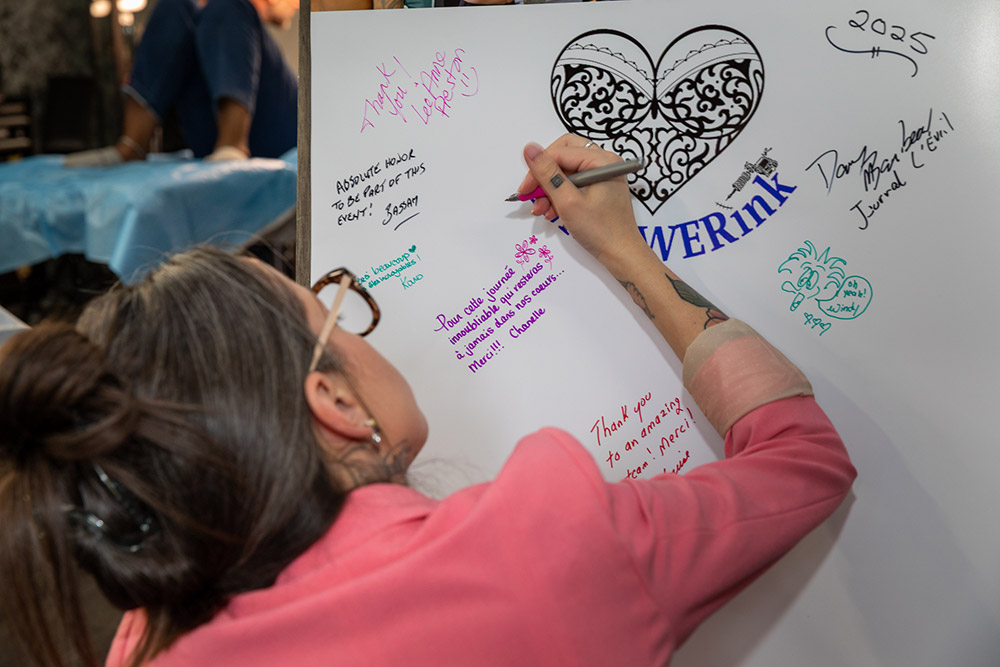 2025
Thank
you!
LeeAnne
Preston
ABSOLUTE HONOR
TO BE PART OF THIS
EVENT! BASSAM
WERink
Journal L'Évil
beaucoup
Karo
Pour cette journée
innoubliable qui resteras
à jamais dans nos coeurs...
Merci!!! Chanelle
oh
yeah!
Windy
Thank you
to an amazing
team! Merci!